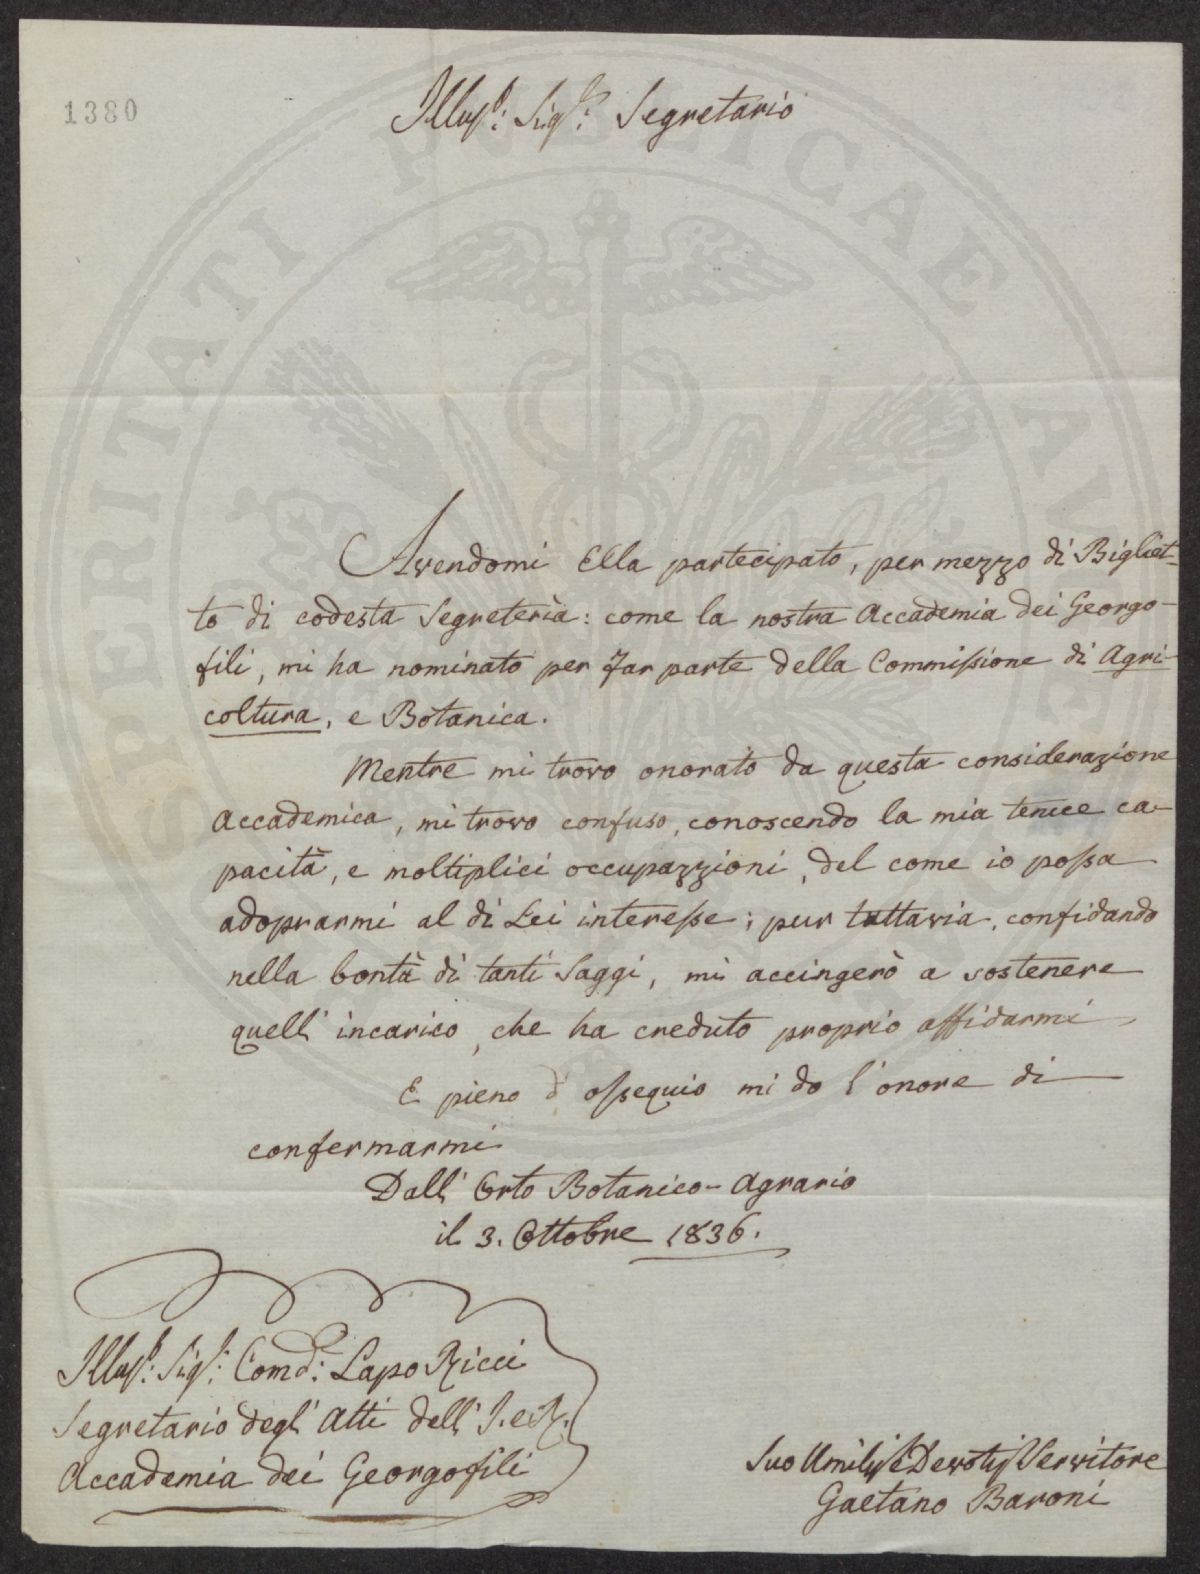 1380
Illus: Sig: Segretario
PROSPERITATI PUBLICAE AUGENDAE
Avendomi Ella partecipato, per mezzo di Bigliet-
to di codesta Segreteria: come la nostra Accademia dei Georgo-
fili, mi ha nominato per far parte della Commissione di Agri-
coltura, e Botanica.
Mentre mi trovo onorato da questa considerazione
Accademica, mi trovo confuso, conoscendo la mia tenue ca-
pacità, e moltiplici occupazzioni, del come io possa
adoprarmi al di Lei interesse; pur tuttavia, confidando
nella bontà di tanti Saggi, mi accingerò a sostenere
quell' incarico, che ha creduto proprio affidarmi
E pieno d' ossequio mi do l'onore di
confermarmi
Dall' Orto Botanico-Agrario
il 3. Ottobre 1836.
Illus: Sig: Comd: Lapo Ricci
Segretario degl' Atti dell' I. e R.
Accademia dei Georgofili
Suo Umilis e Devotis Servitore
Gaetano Baroni